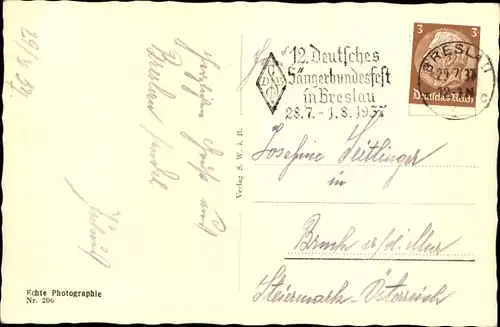 29/7 37
Herzlichen Gruß aus
Breslau sendet
Echte Photographie
Nr. 206
Verlag S. W. i. B.
12. Deutsches
Sängerbundesfest
in Breslau
28.7. - 1.8.1937
3 3
Deutsches Reich
BRESLAU
29.7.37
Josefine Seitlinger
in
Bruck a/d. Mur
Steiermark-Österreich